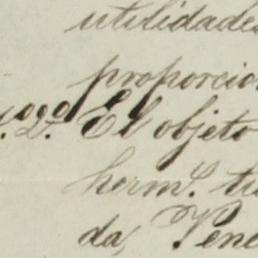 utilidades
proporcio
2º. El objeto
herm.
da, Vene